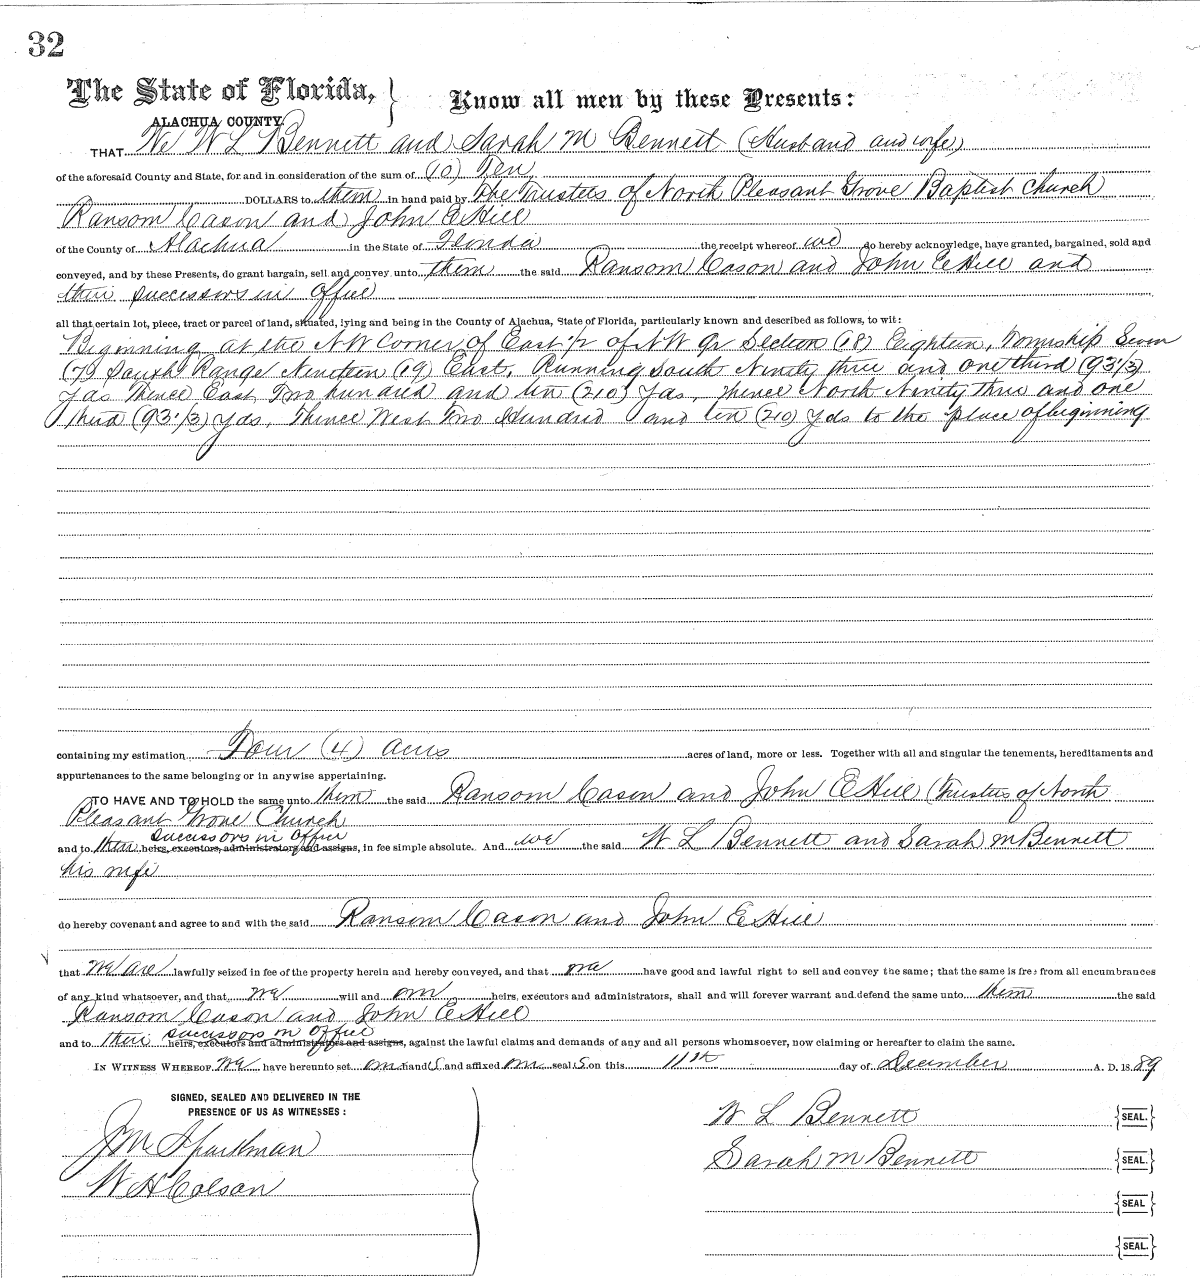 32
The State of Florida,
ALACHUA COUNTY.
Know all men by these Presents:
THAT We W L Bennett and Sarah M Bennett (Husband and wife)
of the aforesaid County and State, for and in consideration of the sum of (10) Ten
DOLLARS to them in hand paid by The Trustees of North Pleasant Grove Baptist Church
Ransom Cason and John E Hill
of the County of Alachua in the State of Florida the receipt whereof we do hereby acknowledge, have granted, bargained, sold and
conveyed, and by these Presents, do grant bargain, sell and convey unto them the said Ransom Cason and John E Hill and
their successors in office
all that certain lot, piece, tract or parcel of land, situated, lying and being in the County of Alachua, State of Florida, particularly known and described as follows, to wit:
Beginning at the NW Corner of East 1/2 of NW Qr Section (18) Eighteen, Township Seven
(7) South Range Nineteen (19) East. Running South Ninety three and one third (93 1/3)
yds Thence East Two hundred and ten (210) yds, thence North Ninety three and one
third (93 1/3) yds, Thence West Two Hundred and ten (210) yds to the place of beginning
containing my estimation Four (4) acres acres of land, more or less. Together with all and singular the tenements, hereditaments and
appurtenances to the same belonging or in anywise appertaining.
TO HAVE AND TO HOLD the same unto them the said Ransom Cason and John E Hill (Trustees of North
Pleasant Grove Church
successors in office
and to their heirs, executors, administrators and assigns, in fee simple absolute. And we the said W L Bennett and Sarah M Bennett
his wife
do hereby covenant and agree to and with the said Ransom Cason and John E Hill
that we are lawfully seized in fee of the property herein and hereby conveyed, and that we have good and lawful right to sell and convey the same; that the same is free from all encumbrances
of any kind whatsoever, and that we will and our heirs, executors and administrators, shall and will forever warrant and defend the same unto them the said
Ransom Cason and John E Hill
successors in office
and to their heirs, executors and administrators and assigns, against the lawful claims and demands of any and all persons whomsoever, now claiming or hereafter to claim the same.
IN WITNESS WHEREOF We have hereunto set our hand s and affixed our seal s on this 11th day of December A. D. 1889
SIGNED, SEALED AND DELIVERED IN THE
PRESENCE OF US AS WITNESSES:
J M Sparkman
W H Colson
W L Bennett {SEAL.}
Sarah M Bennett {SEAL.}
{SEAL}
{SEAL.}